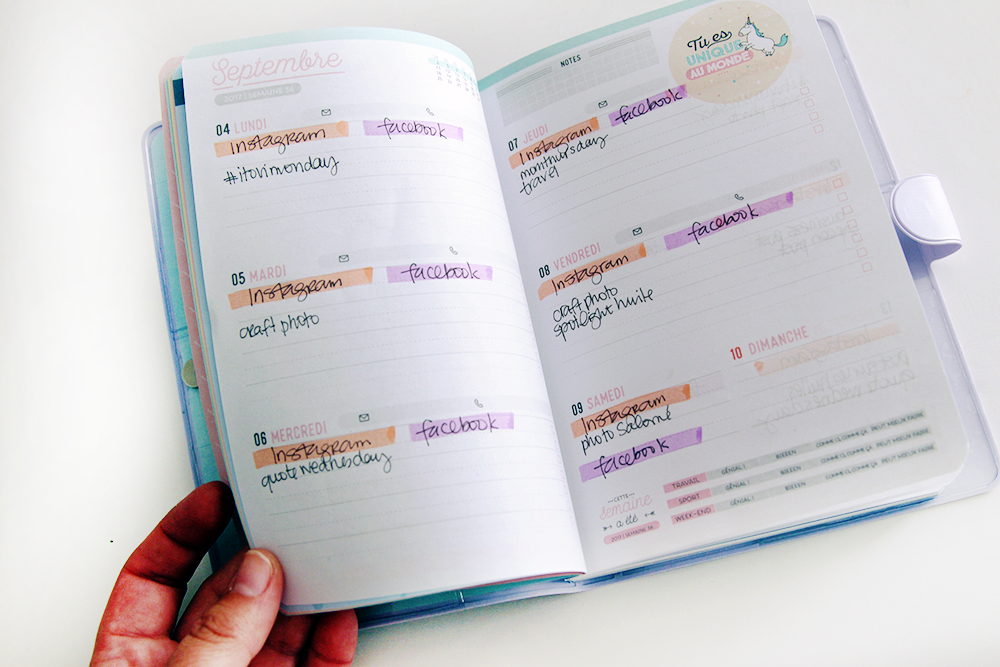 Septembre
2017 | SEMAINE 36
04 LUNDI
Instagram facebook
#itovimonday
05 MARDI
Instagram facebook
craft photo
06 MERCREDI
Instagram facebook
quote wednesday
NOTES
Tu es
UNIQUE
AU MONDE
07 JEUDI
Instagram facebook
monthursday
travel
08 VENDREDI
Instagram facebook
craft photo
spotlight huile
09 SAMEDI
Instagram
photo Salomé
facebook
10 DIMANCHE
CETTE
semaine
a été
2017 | SEMAINE 36
TRAVAIL GÉNIAL ! BIEEEN COMME CI, COMME ÇA PEUT MIEUX FAIRE
SPORT GÉNIAL ! BIEEEN COMME CI, COMME ÇA PEUT MIEUX FAIRE
WEEK-END GÉNIAL ! BIEEEN COMME CI, COMME ÇA PEUT MIEUX FAIRE